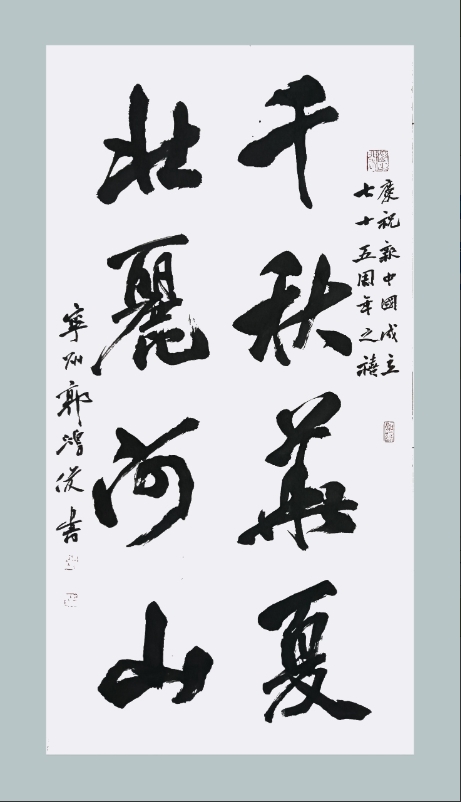 慶祝新中國成立
七十五周年之禧
千秋華夏
壯麗河山
寧州郭鴻俊書